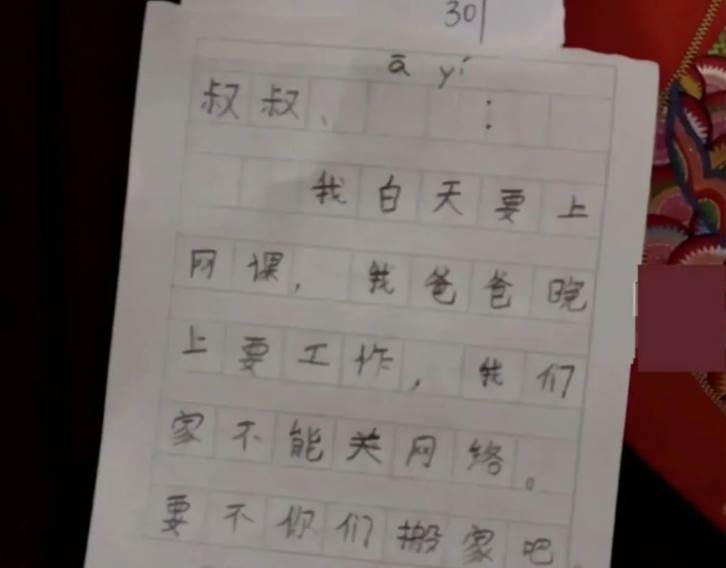 301
ā yí
叔叔、 :
我白天要上
网课, 我爸爸晚
上要工作, 我们
家不能关网络。
要不你们搬家吧